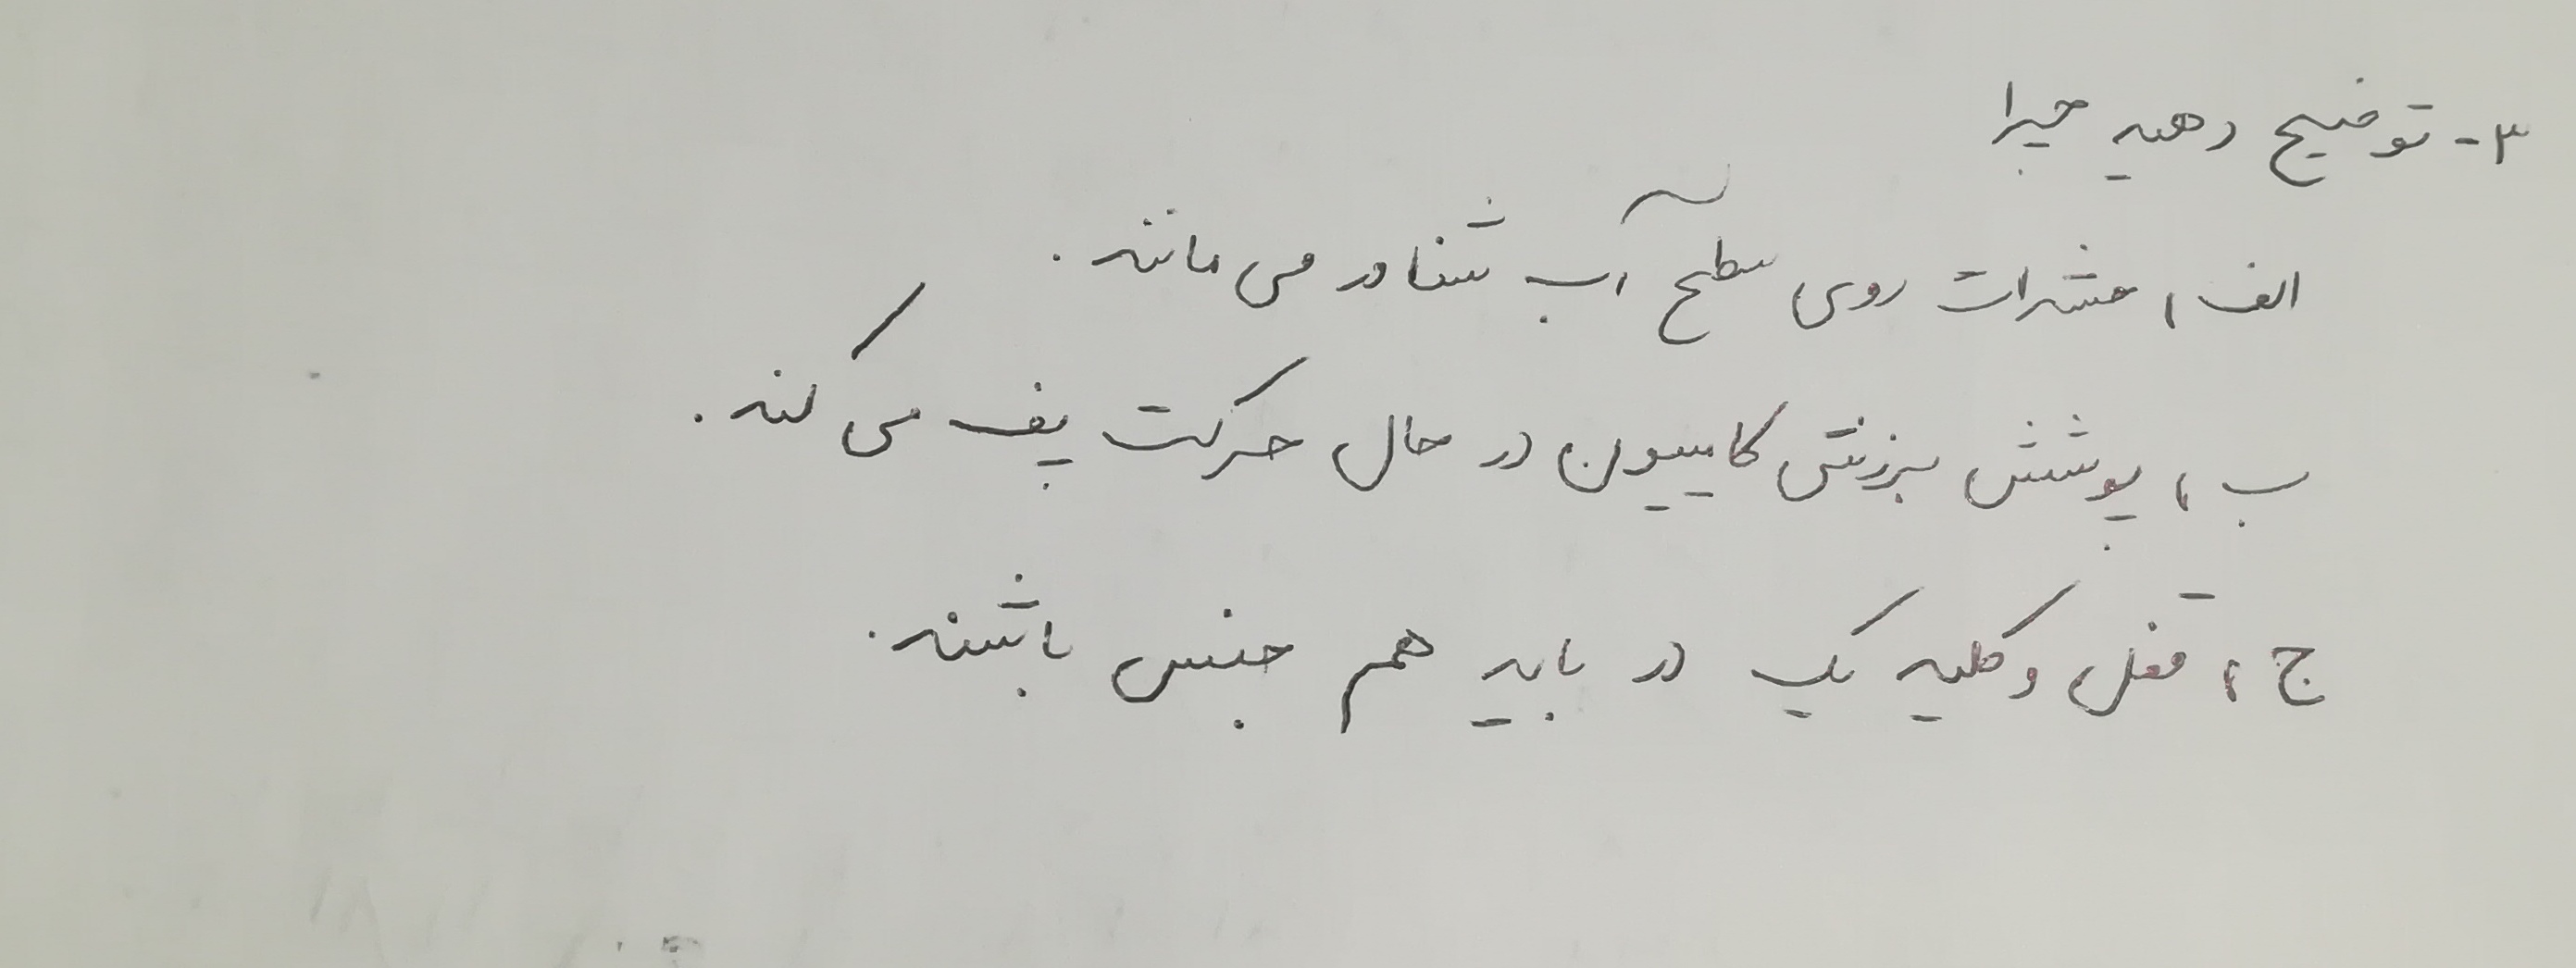 ۳- توضیح دهید چرا
الف) حشرات روی سطح آب شناور می مانند.
ب) پوشش برزنتی کامیون در حال حرکت پف می کند.
ج) قفل و کلید یک در باید هم جنس باشند.